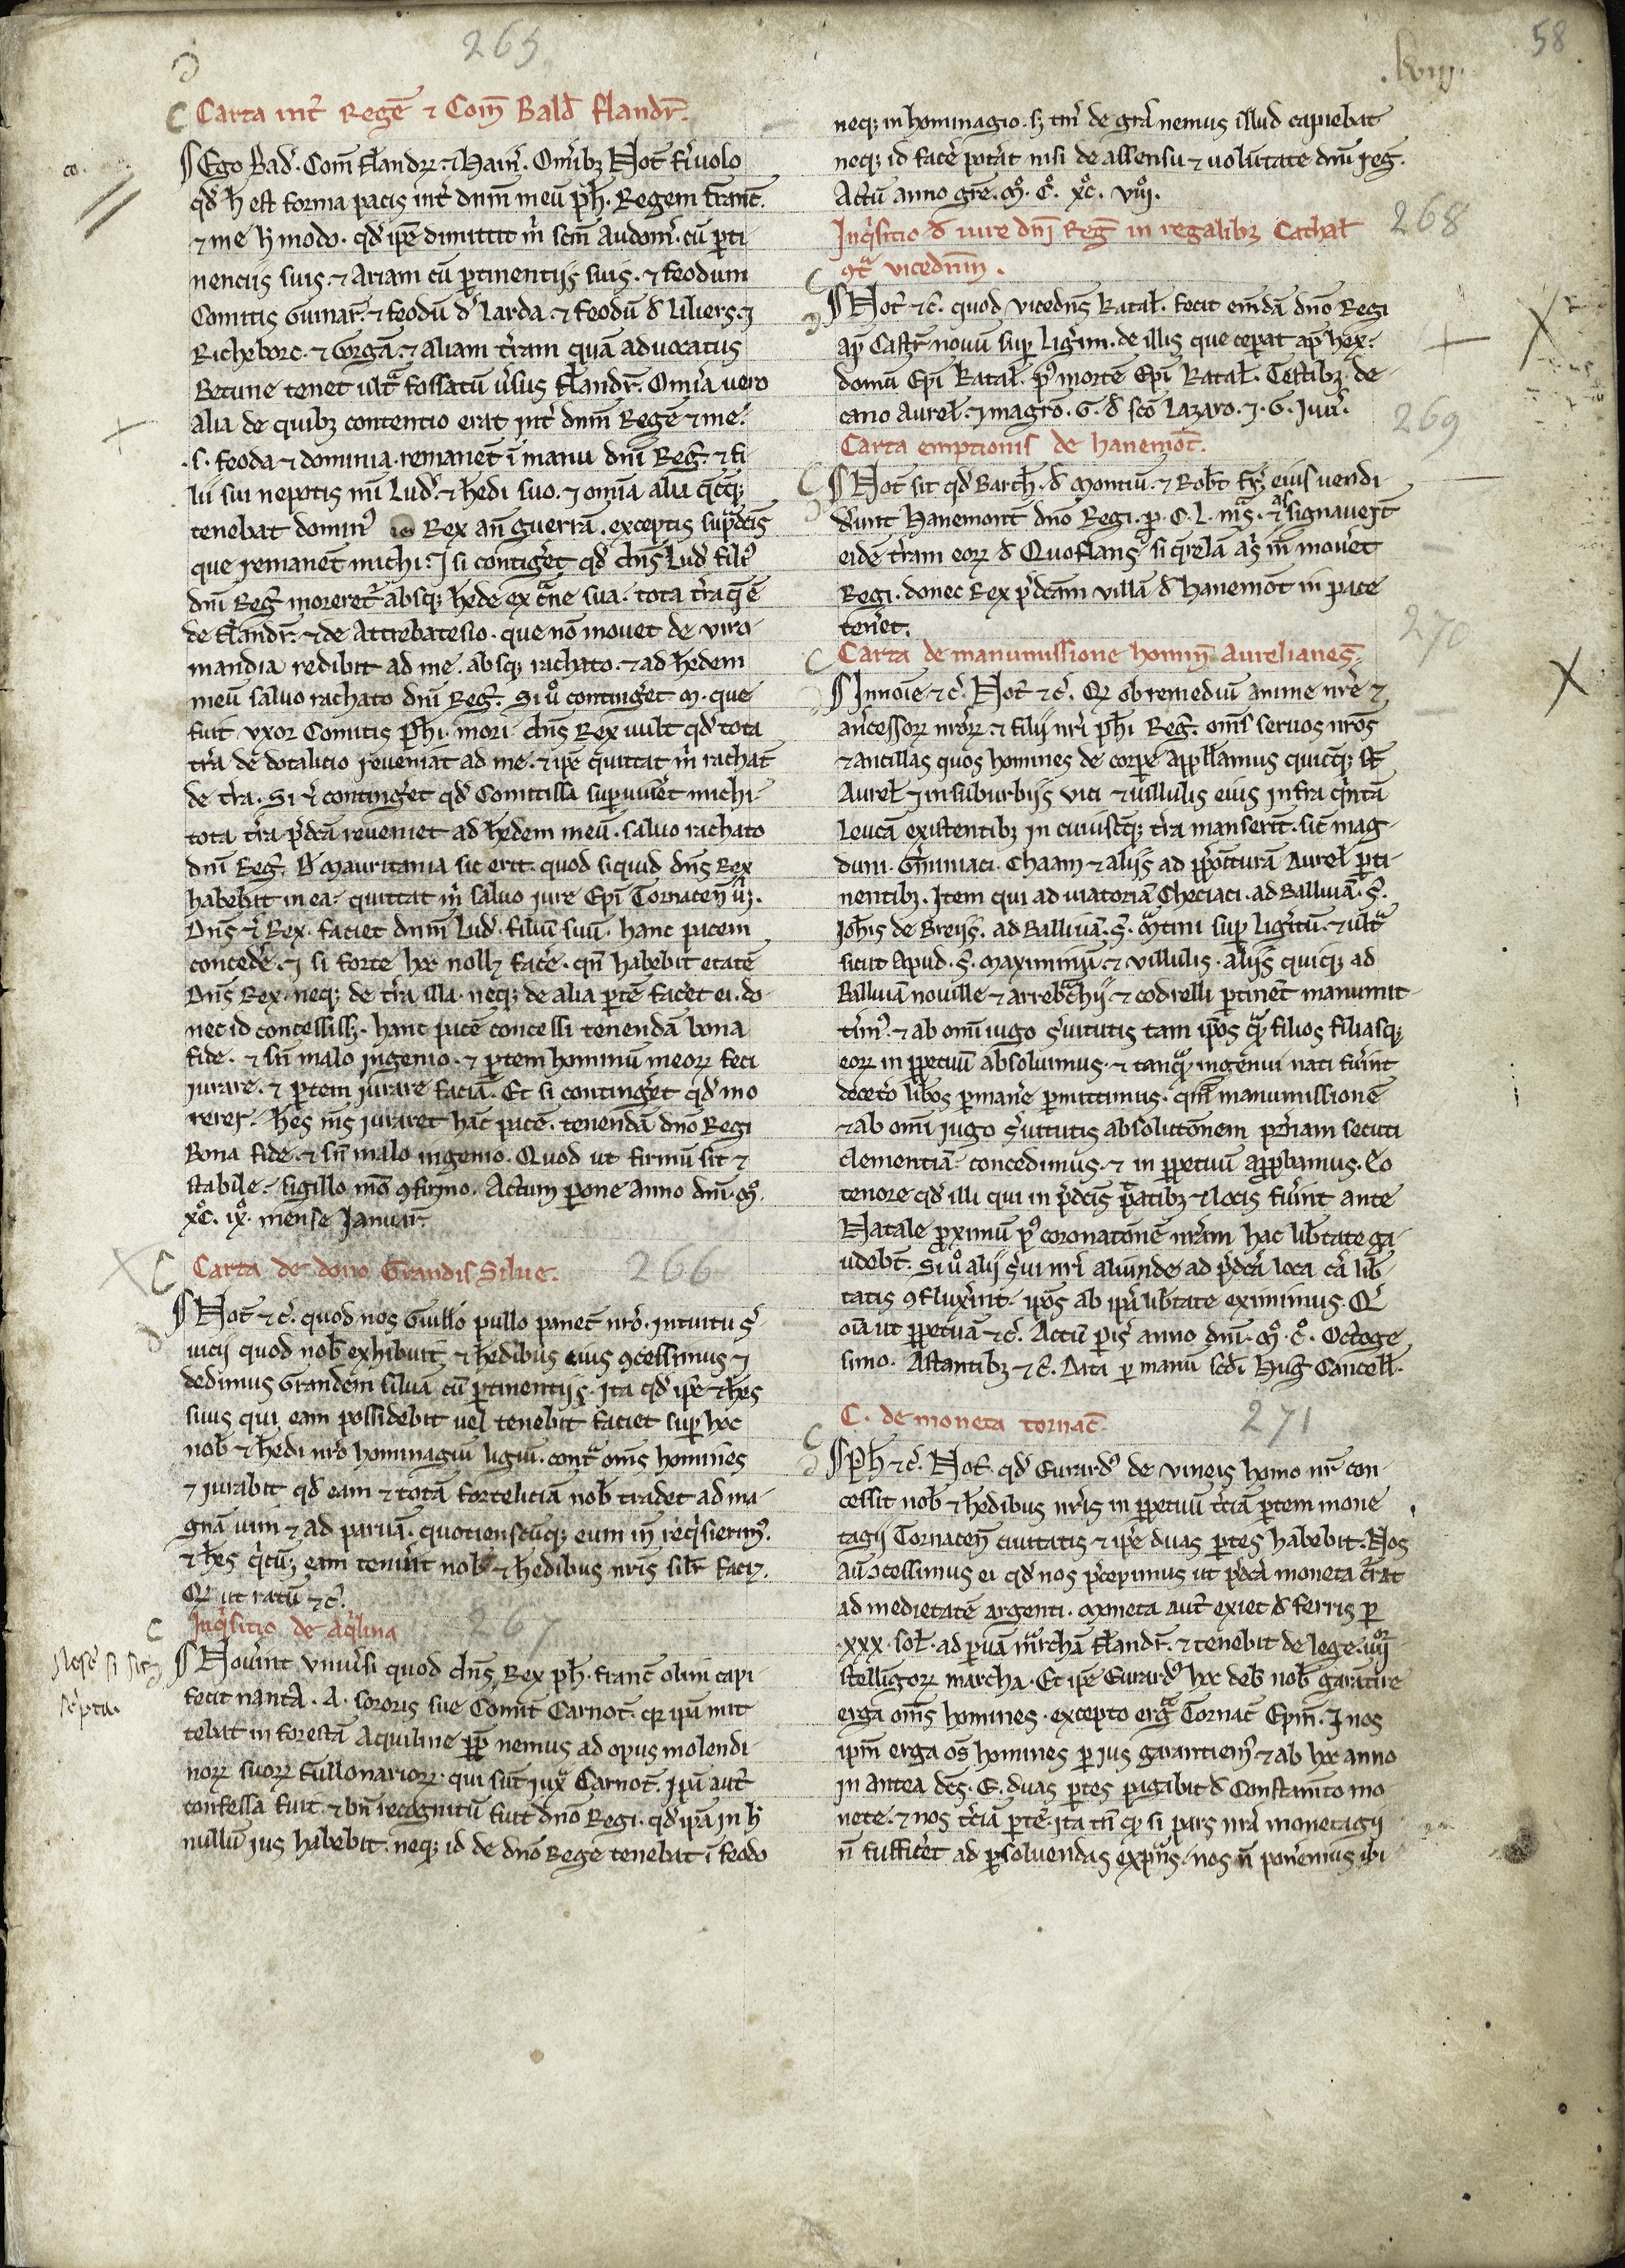 265
58
.lviij.
Carta int̄ Regē ⁊ Com̄ Bald̄ flandr̄.
Ego Bad̄. Com̄ flandrꝝ ⁊ hain̄. Om̄ibꝫ Not̄ fr̄i uolo
qd̄ h̄ est forma pacis int̄ dnm̄ meū ph̄. Regem franc̄.
⁊ me h̄ modo. qd̄ ip̄e dimittit m̄ scm̄ Audom̄. cū ꝑti
nenciis suis ⁊ Ariam cū ꝑtinentijs suis. ⁊ feodum
Comitis Guinar̄. ⁊ feodū d̄ Larda ⁊ feodū d̄ liliers. ⁊
Richeborc. ⁊ Gorgā. ⁊ aliam tr̄ram quā aduocatus
Betune tenet ult̄ fossatū ūsus flandr̄. Om̄ia uero
alia de quibꝫ contentio erat int̄ dnm̄ Regē ⁊ me.
.s. feoda ⁊ dominia remanēt ī manu dnī Reḡ. ⁊ fi
lii sui nepotis mī Lud̄. ⁊ h̄edi suo. ⁊ om̄ia alia q̄cqꝫ
tenebat dominꝰ Rex an̄ guerrā. exceptis sup̄dc̄is
que remanēt michi. ⁊ si contiḡet qd̄ dn̄s Lud̄ filiꝰ
dnī Reḡ moreret̄ absqꝫ h̄ede ex carne sua. tota tr̄ra q̄ ē
de flandr̄. ⁊ de Attrebatesio. que nō mouet de viro
mandia redibit ad me. absqꝫ rachato. ⁊ ad h̄edem
meū saluo rachato dnī Reḡ. Si ū contingeret .M. que
fuit uxor Comitis Ph̄i mori dn̄s Rex uult qd̄ tota
tr̄ra de dotalicio reueniat ad me. ⁊ ip̄e quittat m̄ rachat̄
de tr̄ra. Si ū contingeret qd̄ Comitissa supuiuēt michi
tota tr̄ra p̄dcā reueniet ad h̄edem meū. saluo rachato
dnī Reḡ. D̄ Mauritania sic erit. quod siquid dn̄s Rex
habebat in ea. quittat m̄ saluo iure Ep̄i Tornacen̄ ūꝫ.
Dn̄s ū Rex. faciet dnm̄ Lud̄. filiū suū. hanc pacem
conced̄e. ⁊ si forte hoc nollꝫ fac̄e. qn̄ habebit etatē
Dn̄s Rex. neqꝫ de tr̄ra illa. neqꝫ de alia ꝑtē faceret ei. do
nec id concessissꝫ. hanc pacē concessi tenendā bona
fide. ⁊ sn̄ malo ingenio. ⁊ ꝑtem hominū meorꝝ feci
iurare. ⁊ ꝑtem iurare faciā. Et si contingeret qd̄ mo
rerer. h̄es m̄s iuraret hāc pacē. tenendā dn̄o Regi
Bona fide. ⁊ sn̄ malo ingenio. Quod ut firmū sit ⁊
stabile. sigillo mō ꝯfirmo. Actum Perone Anno dnī. Mº.
xcº. ixº. mense Januar̄.
Carta de dono Grandis Silue. 266
Not̄ ⁊ c̄. quod nos Guill̄o pullo panet̄ nr̄o. intuitu ser
uicij quod nob̄ exhibuit, ⁊ h̄edibus eius ꝯcessimus ⁊
dedimus Grandem siluā cū ꝑtinentijs. Ita qd̄ ip̄e ⁊ h̄es
suus qui eam possidebit uel tenebit faciet sup̄ hoc
nob̄ ⁊ h̄edi nr̄o hominagiū ligiū. cont̄ om̄s homines
⁊ iurabit qd̄ eam ⁊ totā forteliciā nob̄ tradet ad ma
gnā uim ⁊ ad paruā. quotienscūqꝫ eum in̄ req̄sierimꝰ.
⁊ h̄es q̄cūqꝫ eam tenūit nob̄ ⁊ h̄edibus nr̄is silr̄ faciꝫ.
Qd̄ ut ratū ⁊ c̄.
Inq̄sitio de Aq̄lina 267
Nouint vniūsi quod dn̄s Rex ph̄. franc̄ olim capi
fecit nanta. A. sororis sue Comit̄ Carnot̄. qr̄ ip̄a mit
tebat in forestā Aquiline ꝓp̄ nemus ad opus molendi
norꝝ suorꝝ fullonariorꝝ. qui sūt iuxa Carnot̄. Ip̄a aut̄
confessa fuit. ⁊ bn̄ recognitū fuit dn̄o Regi. qd̄ ip̄a in h̄
nullū ius habebat. neqꝫ id de dn̄o Rege tenebat ī feodo
neqꝫ in hominagio. sꝫ tm̄ de grā nemus illud capiebat
neqꝫ id fac̄e potat nisi de assensu ⁊ uolūtate dnī reḡ.
Actū anno gr̄e. Mº. Cº. xcº. viijº.
Inq̄sitio d̄ iure dnī Reḡ in regalibꝫ Cathal̄ 268
ꝯtª vicednm̄.
Not̄ ⁊ c̄. quod vicedn̄s Katal̄. fecit em̄dā dn̄o Regi
ap̄ Castr̄ nouū sup̄ Liḡim. de illis que ceperat ap̄ hex.
domū Ep̄i Katal̄. pꝰ mortē Ep̄i Katal̄. Testibꝫ. de
cano Aurel̄. ⁊ magr̄o. G. d̄ scō Lazaro. ⁊ G. Juū. 269
Carta emptionis de hanemōt.
Not̄ sit qd̄ Barth̄. d̄ Montiū. ⁊ Rob̄t fr̄ eius uendi
d̄unt Hanemont̄ dn̄o Regi. ꝑ. C. l. m̄s. ⁊ assignauer̄t
eidē tr̄ram eorꝝ d̄ Quoflans si q̄relā aꝰs in̄ mou̅et
Regi. donec Rex p̄dcām villā d̄ Hanemōt in pace
ten̄et. 270
Carta de manumissione homin̄ Aurelianes̄.
Innoīe ⁊ c̄. Not̄ ⁊ c̄. Qd̄ ob remediū anime nr̄e ⁊
an̄cessorꝝ nr̄orꝝ. ⁊ filij nr̄i ph̄i Reḡ. om̄s seruos nr̄os
⁊ ancillas quos homines de corpe appellamus quicqꝫ sūt
Aurel̄ ⁊ in suburbijs vici ⁊ uillulis eius infra q̄ntā
leucā existentibꝫ in cuiuscqꝫ tr̄ra manserīt. sic̄ mag
duni. Germiniaci. Chaam ⁊ alijs ad p̄pōiturā Aurel̄ ꝑti
nentibꝫ. Item qui ad uiatoriā Checiaci. ad Balliuā. S̄.
Joh̄is de Breijs. ad Balliuā. S̄. Martini sup̄ Ligitū. ⁊ ult̄
sicut Apud. S̄. Maximinū. ⁊ villulis. alijs quicqꝫ ad
Balliuā nouille ⁊ arrebrachij ⁊ codrelli ꝑtinēt manumit
timꝰ. ⁊ ab om̄i iugo s̄uitutis tam ip̄os qª filios filiasqꝫ
eorꝝ in ꝑpetuū absoluimus. ⁊ tanq̄ ingenui nati fūint
decet̄o lib̄os ꝑman̄e ꝑmittimus. quā manumissionē
⁊ ab om̄i iugo s̄uitutis absolutōnem pr̄nam secuti
clementiā. concedimus. ⁊ in ꝑpetuū approbamus. Eo
tenore qd̄ illi qui in p̄dc̄is p̄tatibꝫ ⁊ locis fūint ante
Natale ꝓximū pꝰ coronatōnē nr̄am hac libtate ga
udebt̄. Si ū alij s̄ui nr̄i aliunde ad p̄dcā loca cā lib̄
tatis ꝯfluxint. ip̄os ab ip̄a libtate eximimus. Qd̄
oīa ut ꝑpetuā ⁊ c̄. Actū Par̄is anno dnī. Mº. Cº. Octoge
simo. Astantibꝫ ⁊ c̄. Data ꝑ manū scd̄i Huḡ Cancell̄.
C. de moneta tornac̄. 271
Ph̄ ⁊ c̄. Not̄. qd̄ Eurardꝰ de vineis homo nr̄ con
cessit nob̄ ⁊ h̄edibus nr̄is in ꝑpetuū tc̄iā ꝑtem mone
tagij Tornacen̄ ciuitatis ⁊ ip̄e duas ꝑtes habebit. Nos
aū ꝯcessimus ei qd̄ nos p̄cepimus ut p̄dcā moneta c̄rat
ad medietatē argenti. Moneta aut̄ exiet d̄ ferris ꝑ
.xxx. sol̄. ad ꝑuā march̄ flandr̄. ⁊ tenebit de lege .iiijºʳ
stellīgorꝝ marcha. Et ip̄e Eurardꝰ hoc deb̄ nob̄ garātire
erga om̄s homines. excepto erga Tornac̄ Ep̄m. ⁊ nos
ip̄m erga om̄s homines ꝑ ius garantiemꝰ ⁊ ab hoc anno
in antea dc̄s. E. duas ꝑtes pagabit d̄ Constam̄to mo
nete. ⁊ nos tc̄iā ꝑtē. ita tn̄ qd̄ si pars nr̄a monetagij
n̄ sufficet ad ꝑsoluendas expn̄s. nos n̄ ponemus ibi